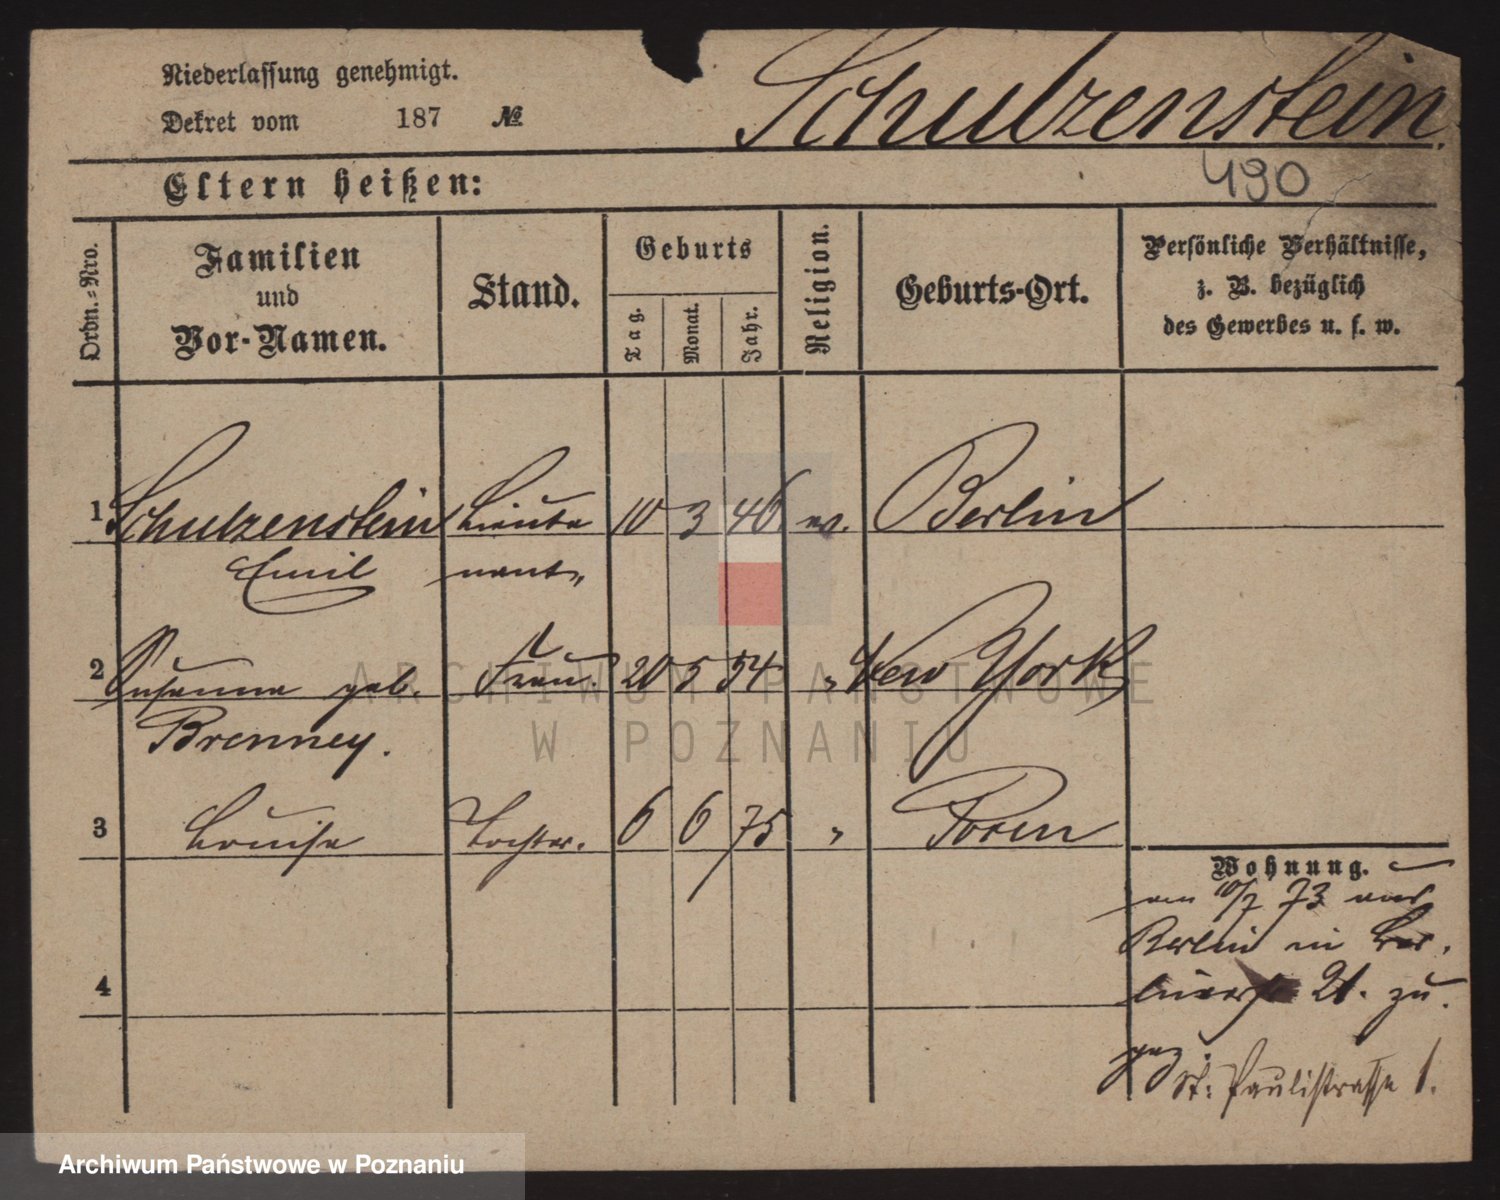 Niederlassung genehmigt.
Dekret vom 187 №
Schulzenstein.
490
Eltern heißen:
Ordn.-Nro.
Familien
und
Vor-Namen.
Stand.
Geburts
Tag.
Monat.
Jahr.
Religion.
Geburts-Ort.
Persönliche Verhältnisse,
z. B. bezüglich
des Gewerbes u. s. w.
1 Schulzenstein Lieute 10 3 46 ev. Berlin
Emil nant„
2 Susanna geb. Frau. 20 5 54 „ New York
Brenney.
3 Louise Tochter. 6 6 75 „ Posen
Wohnung.
am 10/7 73 aus
Berlin in Ber-
linerstr 21. zu-
gez.
St: Paulistrasse 1.
4
ARCHIWUM PAŃSTWOWE
W POZNANIU
Archiwum Państwowe w Poznaniu